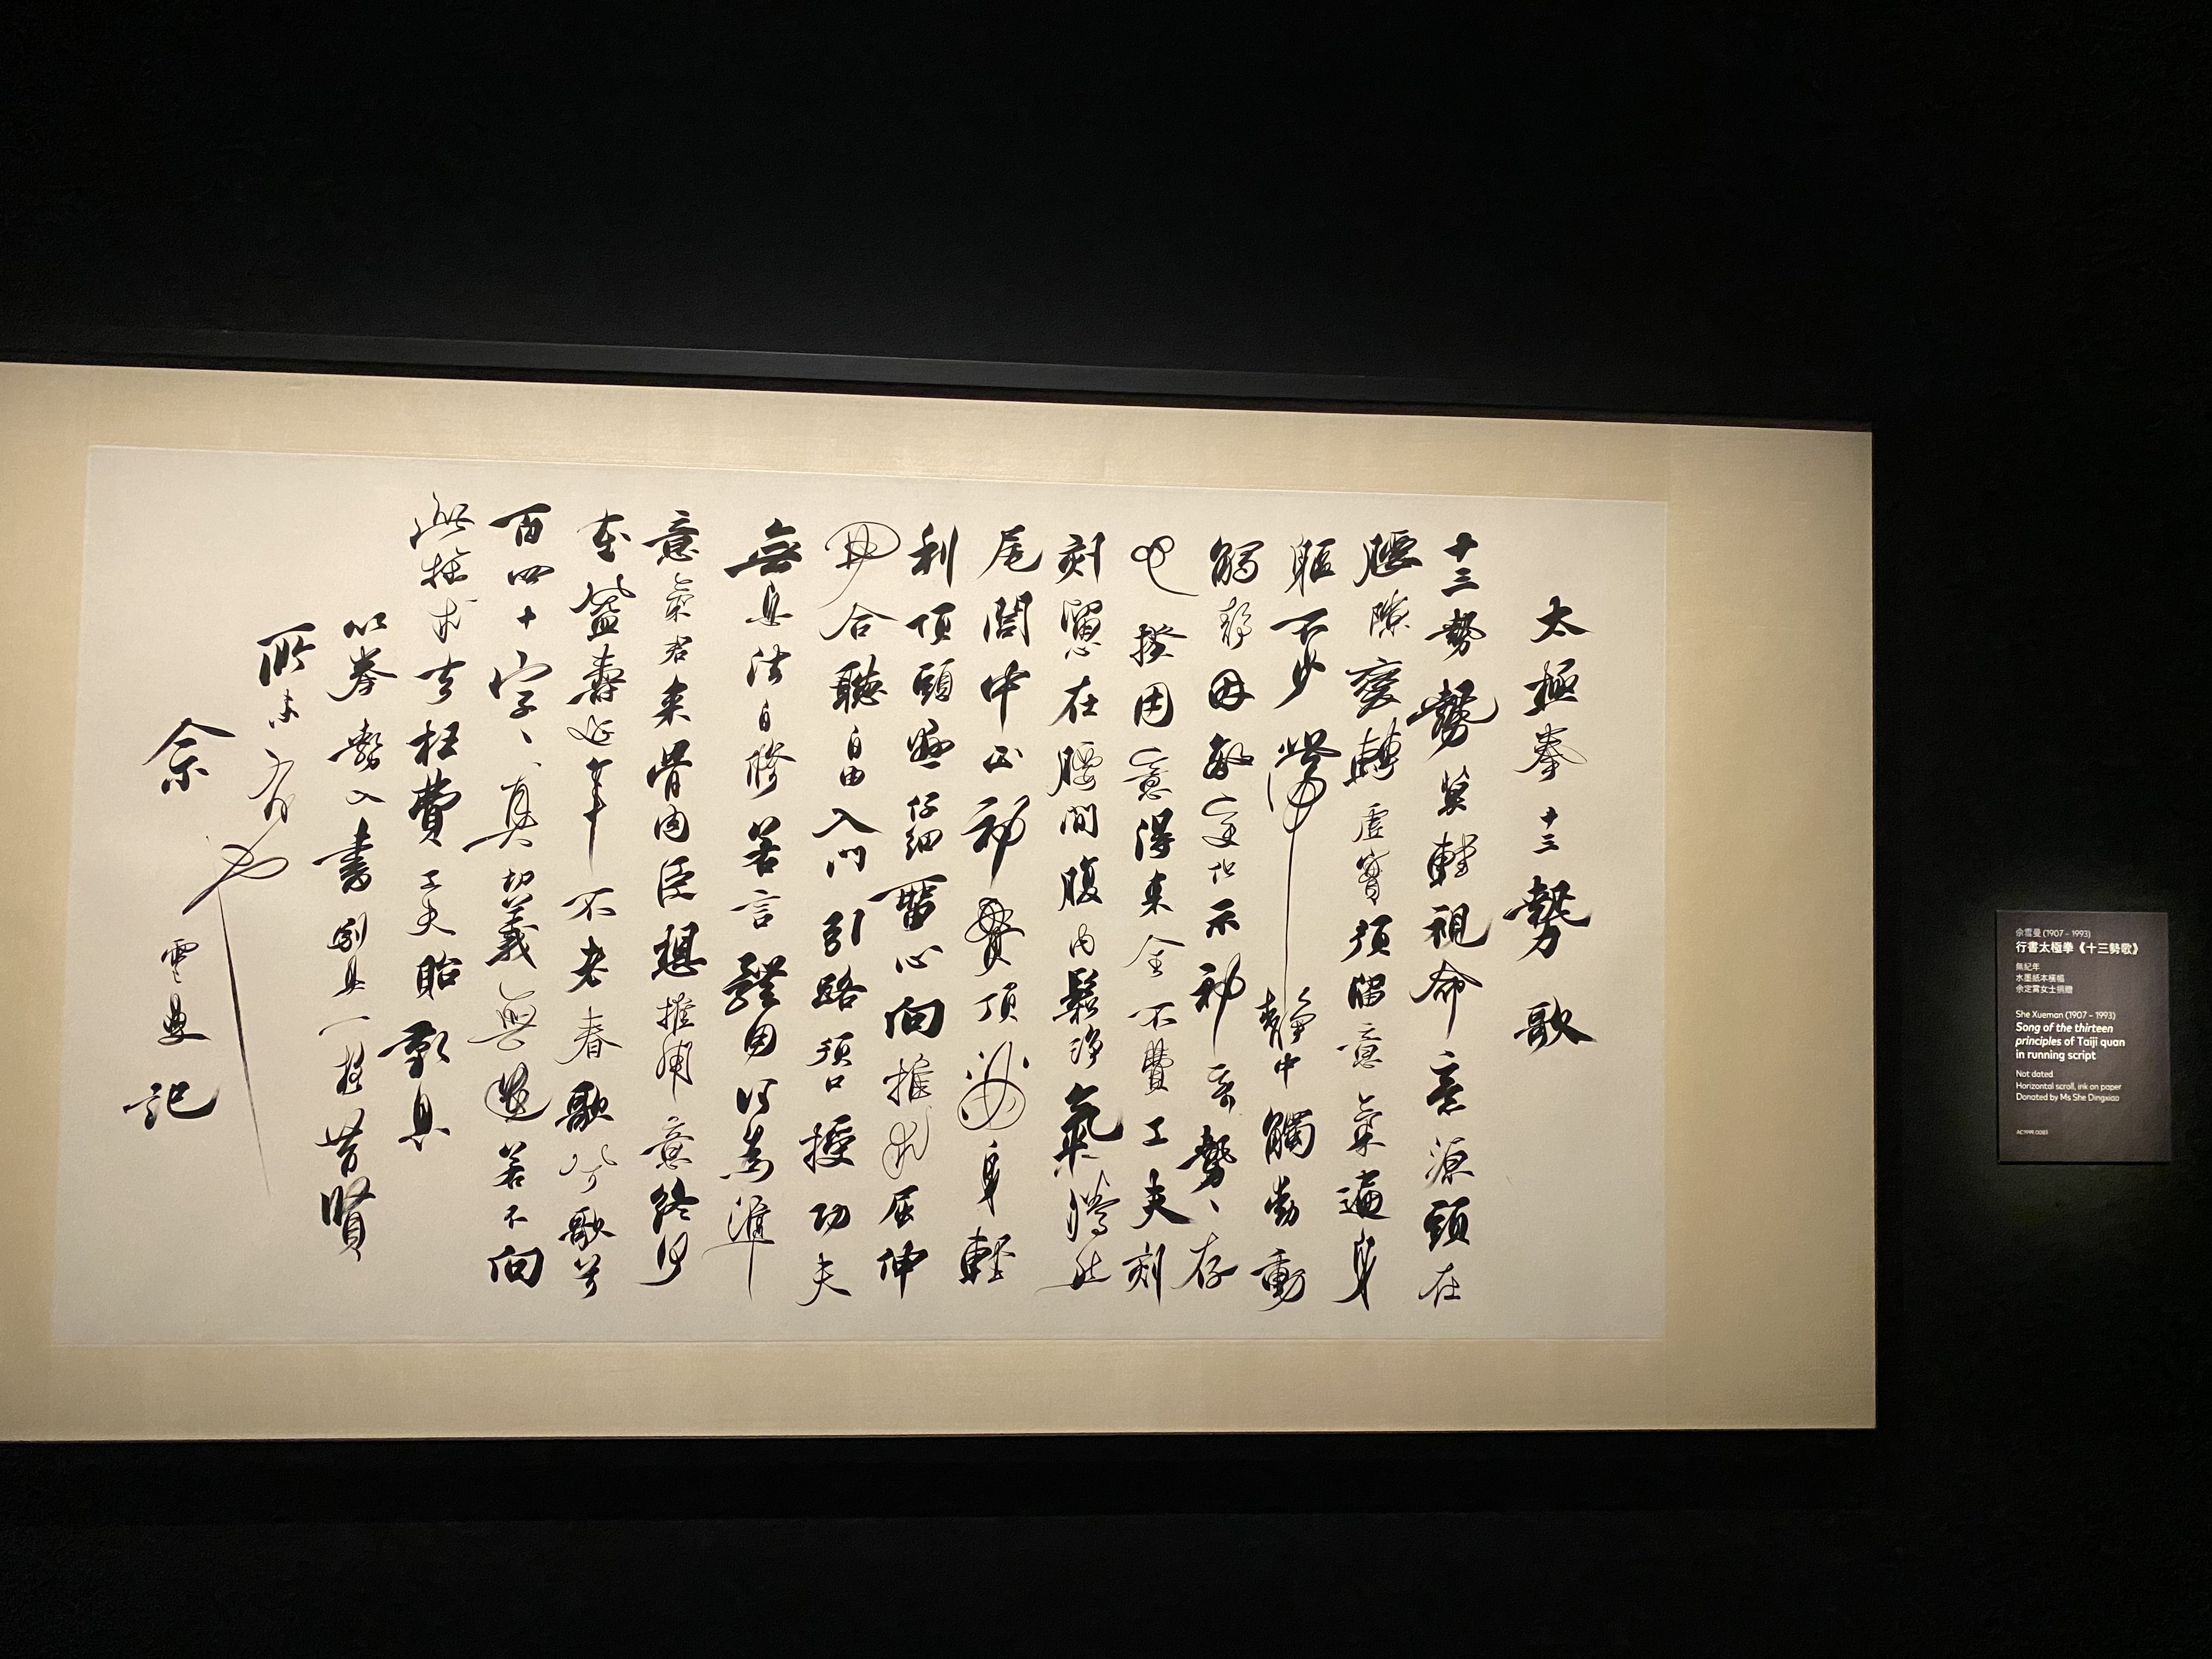 太極拳十三勢歌
十三勢勢莫輕視命意源頭在
腰隙變轉虛實須留意氣遍身
軀不少滯靜中觸動動
觸靜因敵變化示神奇勢、存
心揆用意得來全不費工夫刻
刻留意在腰間腹內鬆淨氣騰然
尾閭中正神貫頂滿身輕
利頂頭懸仔細留心向推求屈伸
開合聽自由入門引路須口授功夫
無息法自修若言體用何為準
意氣君來骨肉臣想推用意終何
在益壽延年不老春歌兮歌兮
百四十字、真切義無遺若不向
此推求去枉費工夫貽歎息
以拳勢入書創具一格昔賢
所未有也
余雪曼記
余雪曼 (1907 – 1993)
行書太極拳《十三勢歌》
無紀年
水墨紙本橫幅
余定賞女士捐贈
She Xueman (1907 – 1993)
Song of the thirteen
principles of Taiji quan
in running script
Not dated
Horizontal scroll, ink on paper
Donated by Ms She Dingxiao